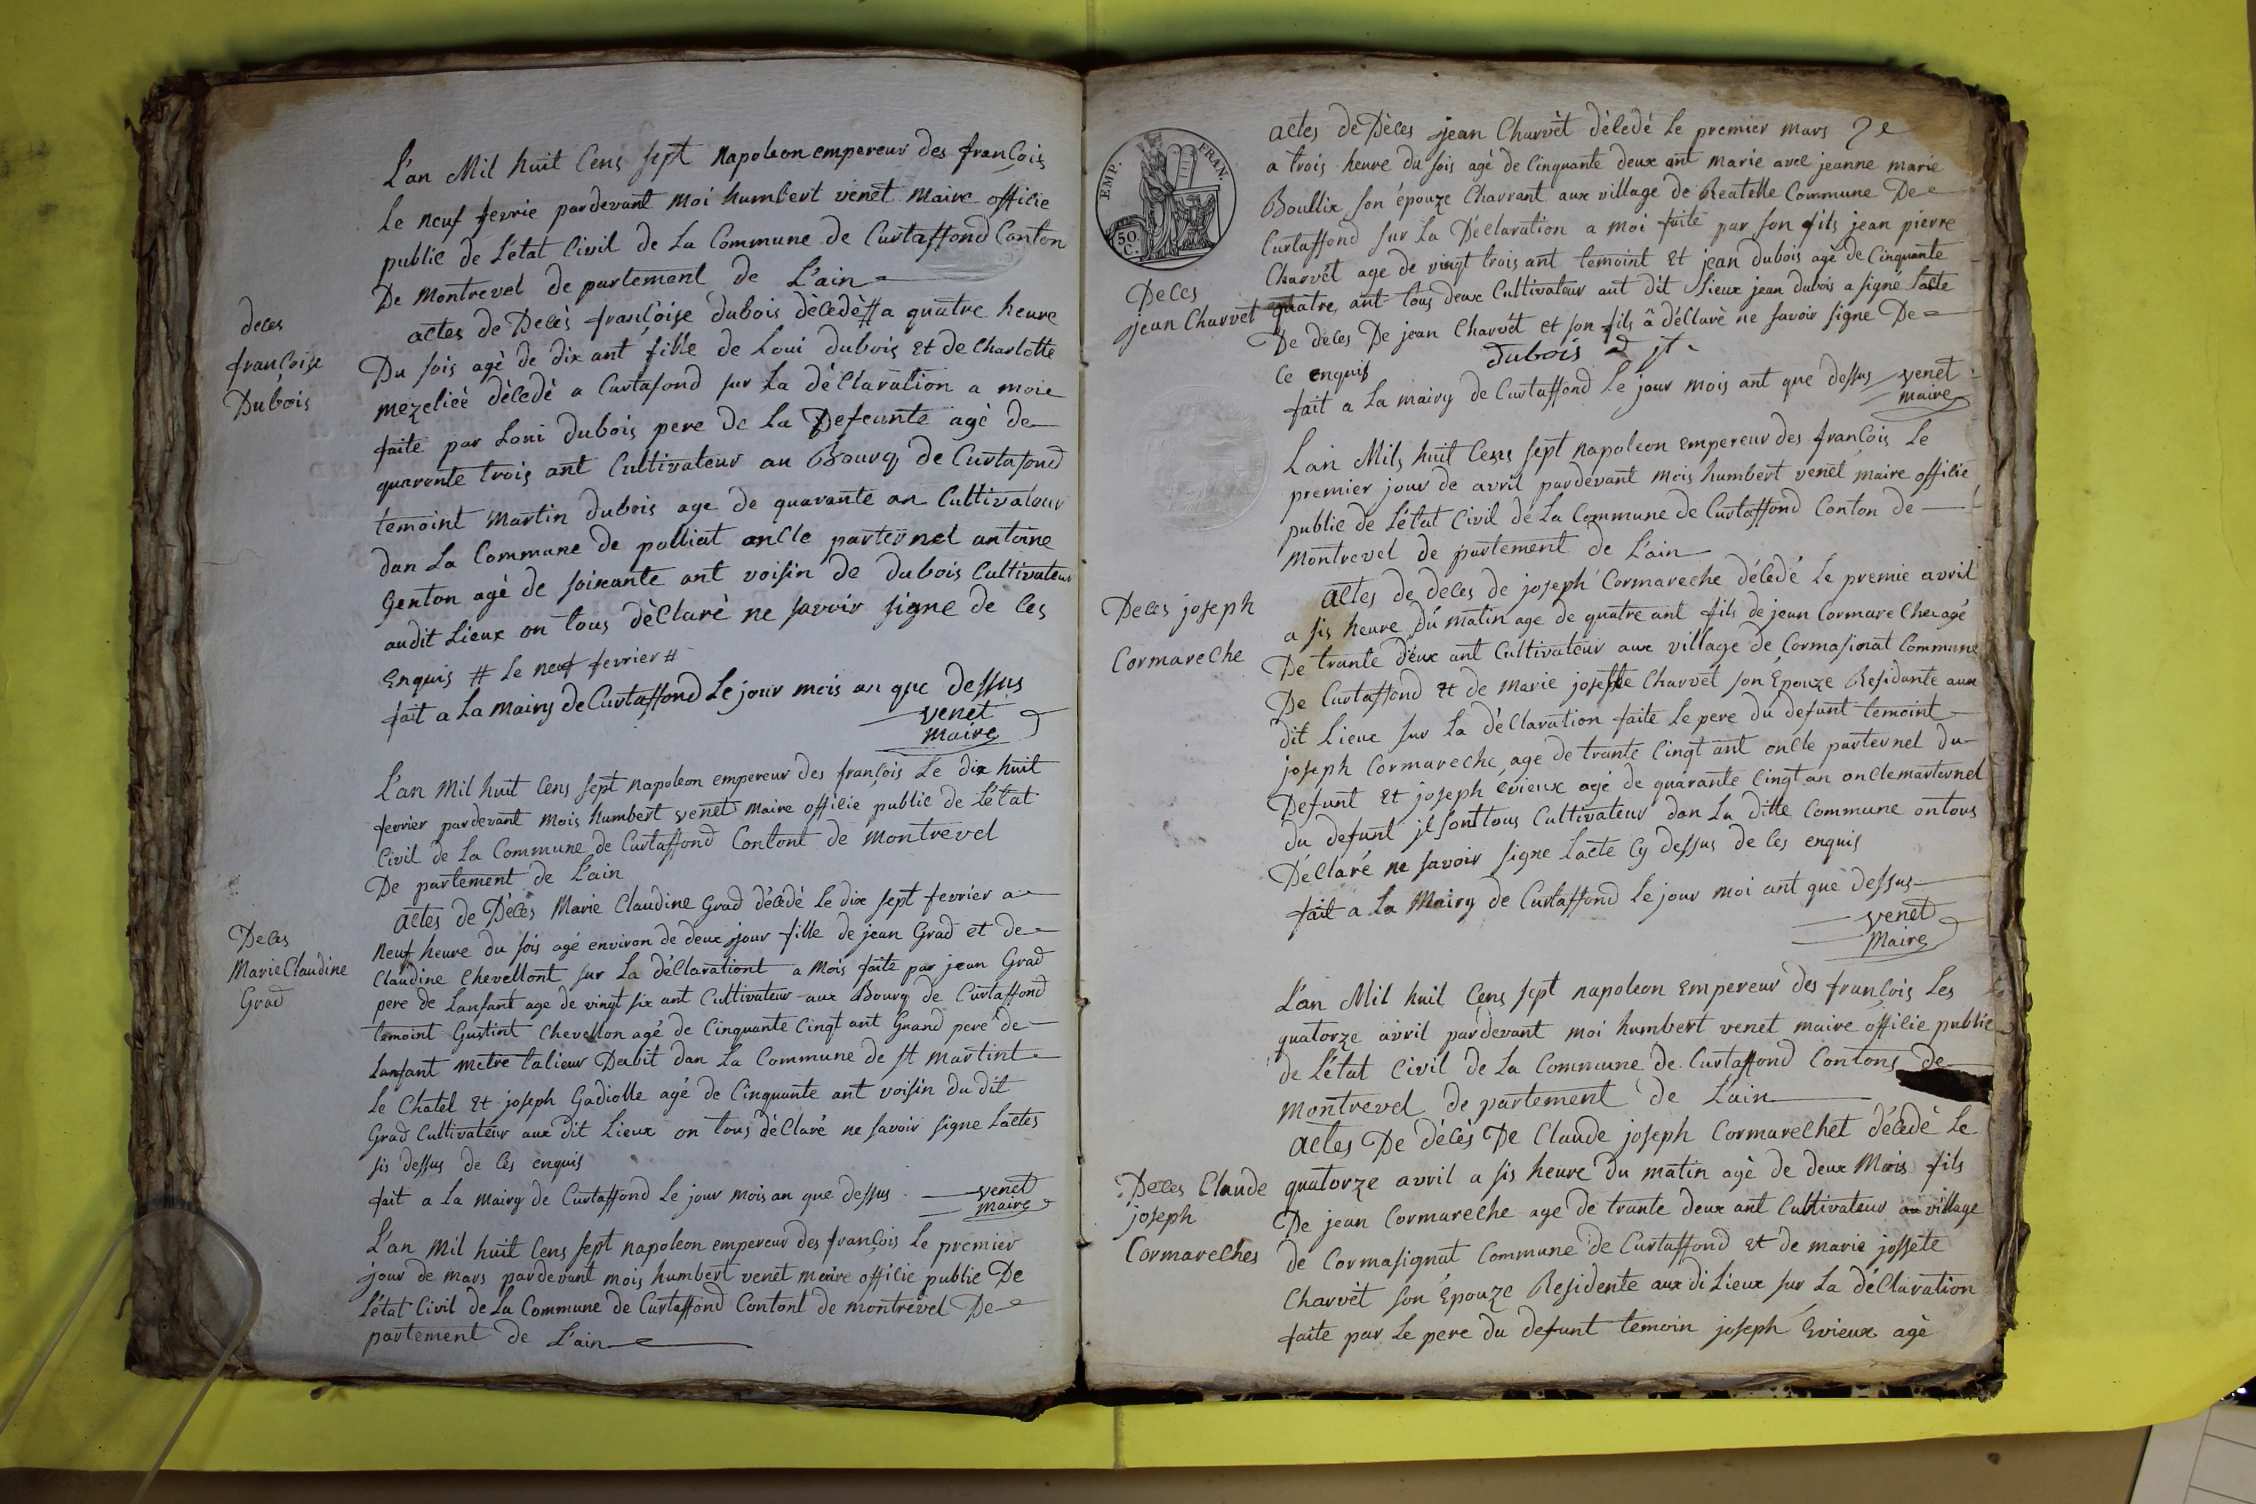 L'an Mil huit Cens sept napoleon empereur des francois
Le neuf fevrie pardevant Moi humbert venet Maire officie
public de L'état Civil de La Commune de Curtaffond Canton
De Montrevel de partement de L'ain
deces
françoise
Dubois
actes de Decès françoise dubois dècedè # a quatre heure
Du sois agè de dix ant fille de Loui dubois et de Charlotte
mezelieè dècedè a Curtafond sur La dèClaration a moie
faite par Loui dubois pere de La Defeunte agè de
quarente trois ant Cultivateur au Bourq de Curtafond
temoint Martin dubois age de quarante an Cultivateur
dan La Commune de polliat onCle parternel antoine
Genton agè de soixante ant voisin de dubois Cultivateur
audit Lieux on tous dèClarè ne savoir signe de Ces
Enquis # Le neuf fevrier #
fait a La Mairy de Curtaffond Le jour mois an que dessus
venet
Maire
L'an Mil huit Cens sept Napoleon empereur des françois Le dix huit
fevrier pardevant Mois humbert venet Maire officie public de L'état
Civil de La Commune de Curtaffond Contont de Montrevel
De partement de L'ain
Deces
Marie Claudine
Grad
actes de Dèces Marie Claudine Grad décédé Le dix sept fevrier a
Neuf heure du sois agé environ de deux jour fille de jean Grad et de
Claudine Chevellont sur La déClarationt a Mois faite par jean Grad
pere de Lanfant age de vingt six ant Cultivateur aux Bourg de Curtaffond
temoint Gustint Chevellon agé de Cinquante Cingt ant Grand pere de
Lanfant Metre talieur Dabit dan La Commune de st Martint
Le Chatel Et joseph Gadiolle agé de Cinquante ant voisin du dit
Grad Cultivateur aux dit Lieux on tous déClaré ne savoir signe Lactes
sis dessus de Ces enquis
fait a La Mairy de Curtaffond Le jour Mois an que dessus
venet
Maire
L'an Mil huit Cens sept Napoleon empereur des françois Le premier
jour de Mars pardevant Mois humbert venet Maire officie public De
L'état Civil de La Commune de Curtaffond Contont de Montrevel De
partement de L'ain
EMP. FRAN.
50 C.
actes de Dèces jean Charvèt dècedé Le premier Mars
a trois heure du sois agè de Cinquante deux ant Marie avec jeanne Marie
Boullix son épouze Charrant aux village de Reatelle Commune De
Curtaffond sur La Déclaration a Moi faite par son fils jean pierre
Charvèt age de vingt trois ant temoint Et jean dubois agè de Cinquante
Deces
jean Charvet
quatre, ant tous deux Cultivateur aut dit Lieux jean dubois a signé Lacte
De deces De jean Charvét et son fils à déClaré ne savoir signe De
Ce enquis
dubois
fait a La mairy de Curtaffond Le jour Mois ant que dessus
venet
Maire
Lan Mils huit Cens sept Napoleon empereur des françois Le
premier jour de avril pardevant Mois humbert venet Maire officie
public de L'état Civil de La Commune de Curtaffond Conton de
Montrevel de partement de L'ain
Deces joseph
Cormareche
actes de deces de joseph Cormareche décedé Le premie avril
a sis heure du matin age de quatre ant fils de jean Cormareche agé
De trante deux ant Cultivateur aux village de Cormasinat Commune
De Curtaffond Et de Marie josephte Charvet son Epouze Residante aux
dit Lieux sur La déClaration faite Le pere du defunt temoint
joseph Cormareche age de trante Cingt ant onCle parternel du
Defunt Et joseph Evieux agé de quarante Cingt an onCle marternel
du defunt jl sont tous Cultivateur dan La ditte Commune on tous
Déclaré ne savoir signe Lacte Cy dessus de Ces enquis
fait a La Mairy de Curtaffond Le jour Moi ant que dessus
venet
Maire
L'an Mil huit Cens sept Napoleon Empereur des françois Les
quatorze avril pardevant Moi humbert venet Maire officie public
de L'état Civil de La Commune de Curtaffond Contons de
Montrevel de partement de L'ain
Deces Claude
joseph
Cormareches
actes De décès De Claude joseph Cormarechet décedé Le
quatorze avril a sis heure du matin agé de deux Mois fils
De jean Cormareche age de trante deux ant Cultivateur au village
de Cormasignat Commune de Curtaffond Et de Marie jossete
Charvèt son Epouze Residente aux di Lieux sur La déClaration
faite par Le pere du defunt temoin joseph Evieux agè